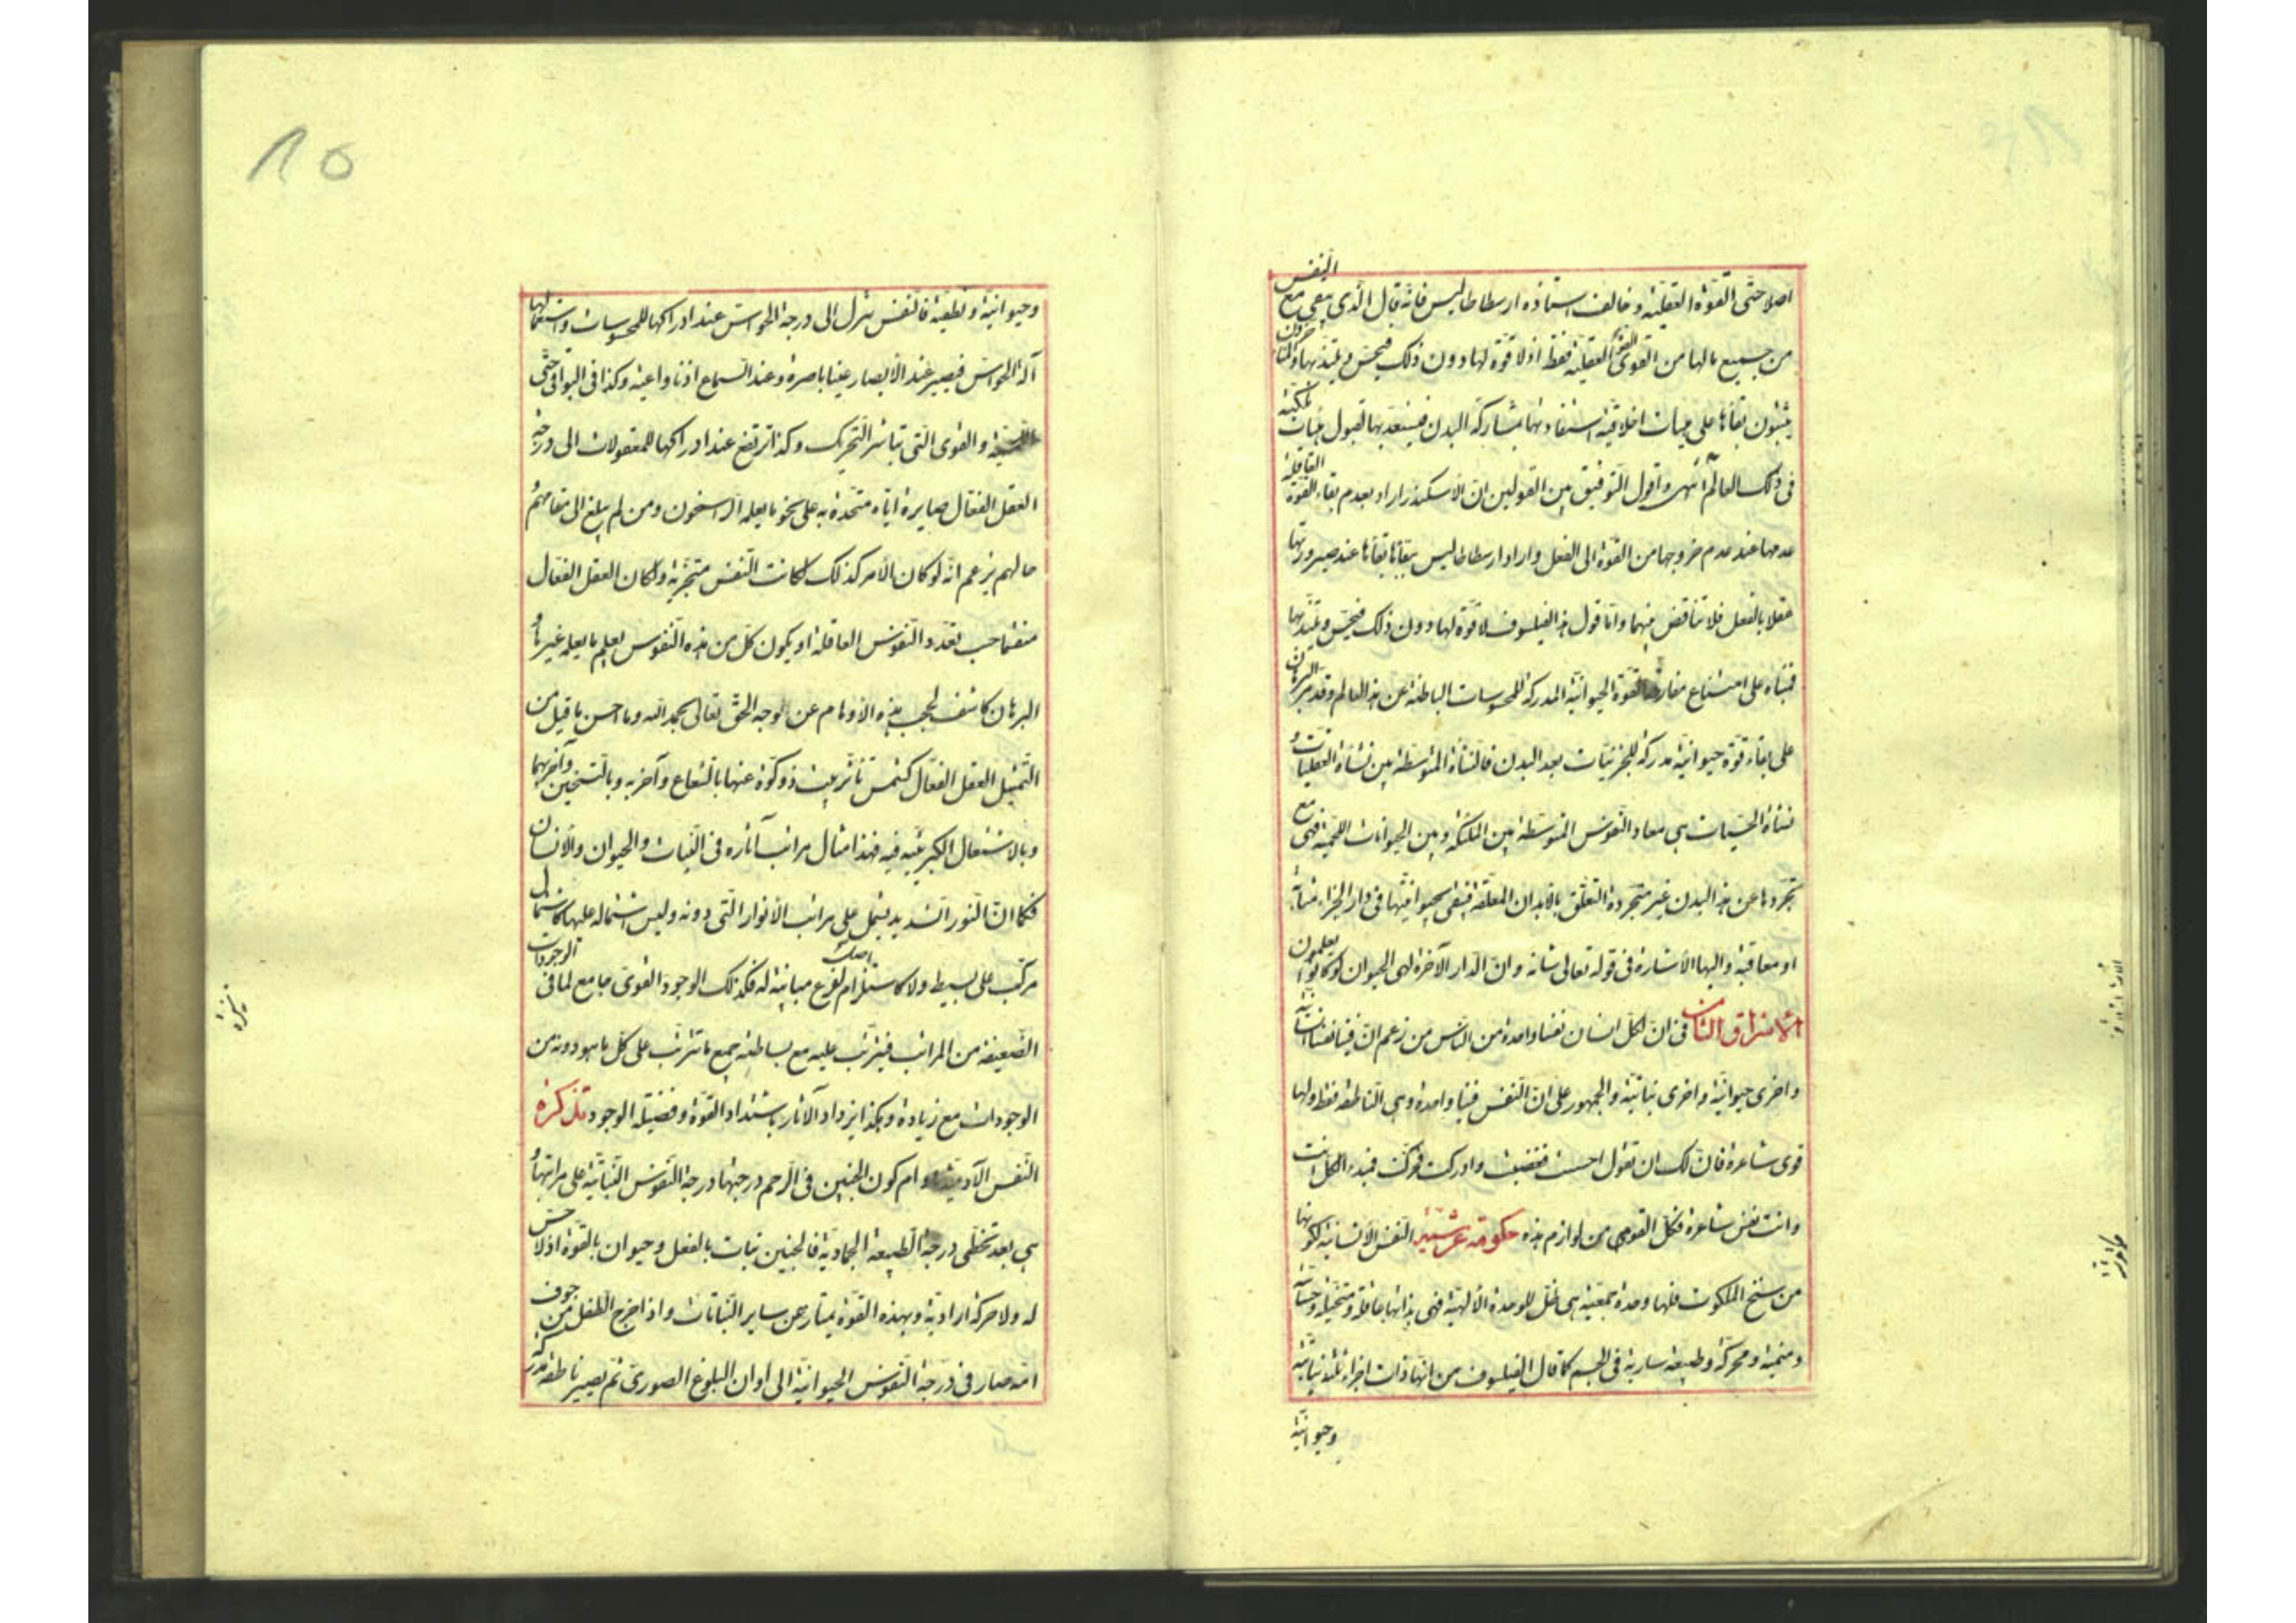 اصلا حتّى القوّة العقليّة و خالف استاذه ارسطاطاليس فانّه قال الّذى يبقى مع النفس
من جميع مالها من القوى القوّة العقليّة فقط اذ لا قوّة لها دون ذلك فيحسّ و يلتذّ بها و المتأخرون
يثبتون بقاءها على هيئات اخلاقيّة استفادتها بمشاركة البدن فيستعدّ بها لقبول هيئات ملكيّة
فى ذلك العالم انتهى و اقول التوفيق بين القولين انّ الاسكندر اراد بعدم بقاء القوّة العاقلة
عدمها عند عدم خروجها من القوّة الى الفعل و اراد ارسطاطاليس ببقائها بقاءها عند صيرورتها
عقلا بالفعل فلا تناقض بينهما و امّا قول هذا الفيلسوف لا قوّة لها دون ذلك فيحسّ و يلتذّ بها
فمبناه على امتناع مفارقة القوّة الحيوانيّة المدركة للمحسوسات الباطنة عن هذا العالم و قد مرّ البرهان
على بقاء قوّة حيوانيّة مدركة للجزئيّات بعد البدن فالنشأة المتوسّطة بين نشأة العقليّات و
نشأة الحسّيات هى معاد النفوس المتوسّطة بين الملئكة و بين الحيوانات اللحميّة فهى مع
تجرّدها عن هذا البدن غير متجرّدة التعلّق بالابدان المعلّقة فتبقى بحيوانيّتها فى دار الجزاء مثابة
او معاقبة و اليها الاشارة فى قوله تعالى شانه و انّ الدار الآخرة لهى الحيوان لو كانوا يعلمون
الاشراق الثامن فى انّ لكلّ انسان نفسا واحدة من الناس من زعم انّ فينا نفسا انسانيّة
و اخرى حيوانيّة و اخرى نباتيّة و الجمهور على انّ النفس فينا واحدة و هى الناطقة فقط و لها
قوى شاعرة فانّ لك ان تقول احسست فغضبت و ادركت فحرّكت فمبدء الكلّ انت
و انت نفس شاعرة فكلّ القوى من لوازم هذه حكومة عرشيّة النفس الانسانيّة لكونها
من سنخ الملكوت فلها وحدة جمعيّة هى ظلّ للوحدة الالهيّة فهى بذاتها عاقلة و متخيّلة و حسّاسة
و منمية و محرّكة و طبيعة سارية فى الجسم كما قال الفيلسوف من انّها ذات اجزاء ثلثة نباتيّة
و حيوانيّة
١٥
و حيوانيّة و نطقيّة فالنفس تنزل الى درجة الحواسّ عند ادراكها للمحسوسات و استعمالها
آلة الحواسّ فيصير عند الابصار عينا باصرة و عند السماع اذنا واعية و كذا فى البواقى حتّى
اللمسيّة و القوى الّتى تباشر التحريك و كذا ترتفع عند ادراكها للمعقولات الى درجة
العقل الفعّال صايرة ايّاه متّحدة به على نحو ما يعلمه الراسخون و من لم يبلغ الى مقامهم و
حالهم يزعم انّه لو كان الامر كذلك لكانت النفس متجزّية و لكان العقل الفعّال
منقسما حسب تعدّد النفوس العاقلة او يكون كلّ من هذه النفوس يعلم ما يعلمه غيرها و
البرهان كاشف لحجب هذه الاوهام عن الوجه الحقّ تعالى بحمد الله و ما احسن ما قيل من
التمثيل العقل الفعّال كشمس تأثّر بيت ذو كوّة عنها بالشعاع و آخر به و بالتسخين و آخر بهما
و بالاشتعال لكبريتيّة فيه فهذا مثال مراتب آثاره فى النبات و الحيوان و الانسان
فكما انّ النور الشديد يشمل على مراتب الانوار الّتى دونه و ليس اشتماله عليها كاشتمال
مركّب على بسيط و لا كاستلزام اصل لفرع مباينة له فكذلك الوجود القوىّ جامع لما فى الوجودات
الضعيفة من المراتب فيترتّب عليه مع بساطته جميع ما تترتّب على كلّ ما هو دونه من
الوجودات مع زيادة و هكذا يزداد الآثار باشتداد القوّة و فضيلة الوجود تذكرة
النفس الآدميّة مادام كون الجنين فى الرحم درجتها درجة النفوس النباتيّة على مراتبها و
هى بعد تخطّى درجة الطبيعة الجماديّة فالجنين نبات بالفعل و حيوان بالقوّة اذ لا حسّ
له و لا حركة اراديّة و بهذه القوّة يمتاز عن ساير النباتات و اذا خرج الطفل من جوف
امّه صار فى درجة النفوس الحيوانيّة الى اوان البلوغ الصورى ثمّ تصير ناطقة مدركة
تذكرة